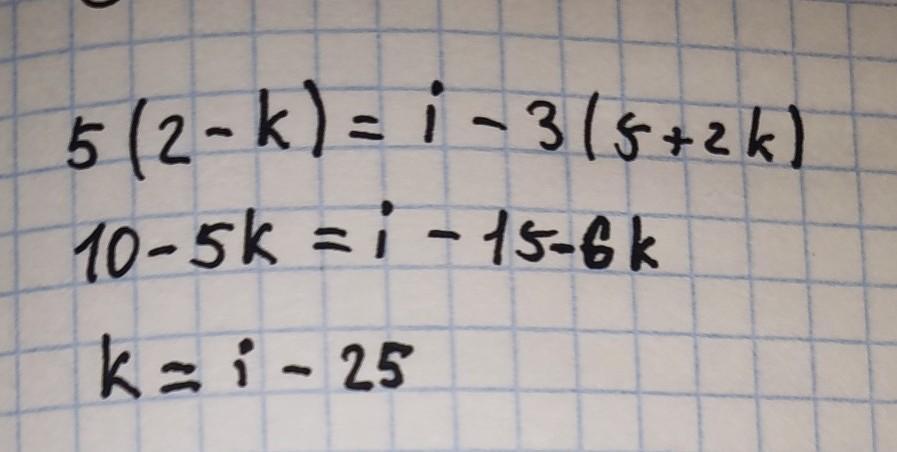 5(2-k)=i-3(5+2k)
10-5k=i-15-6k
k=i-25